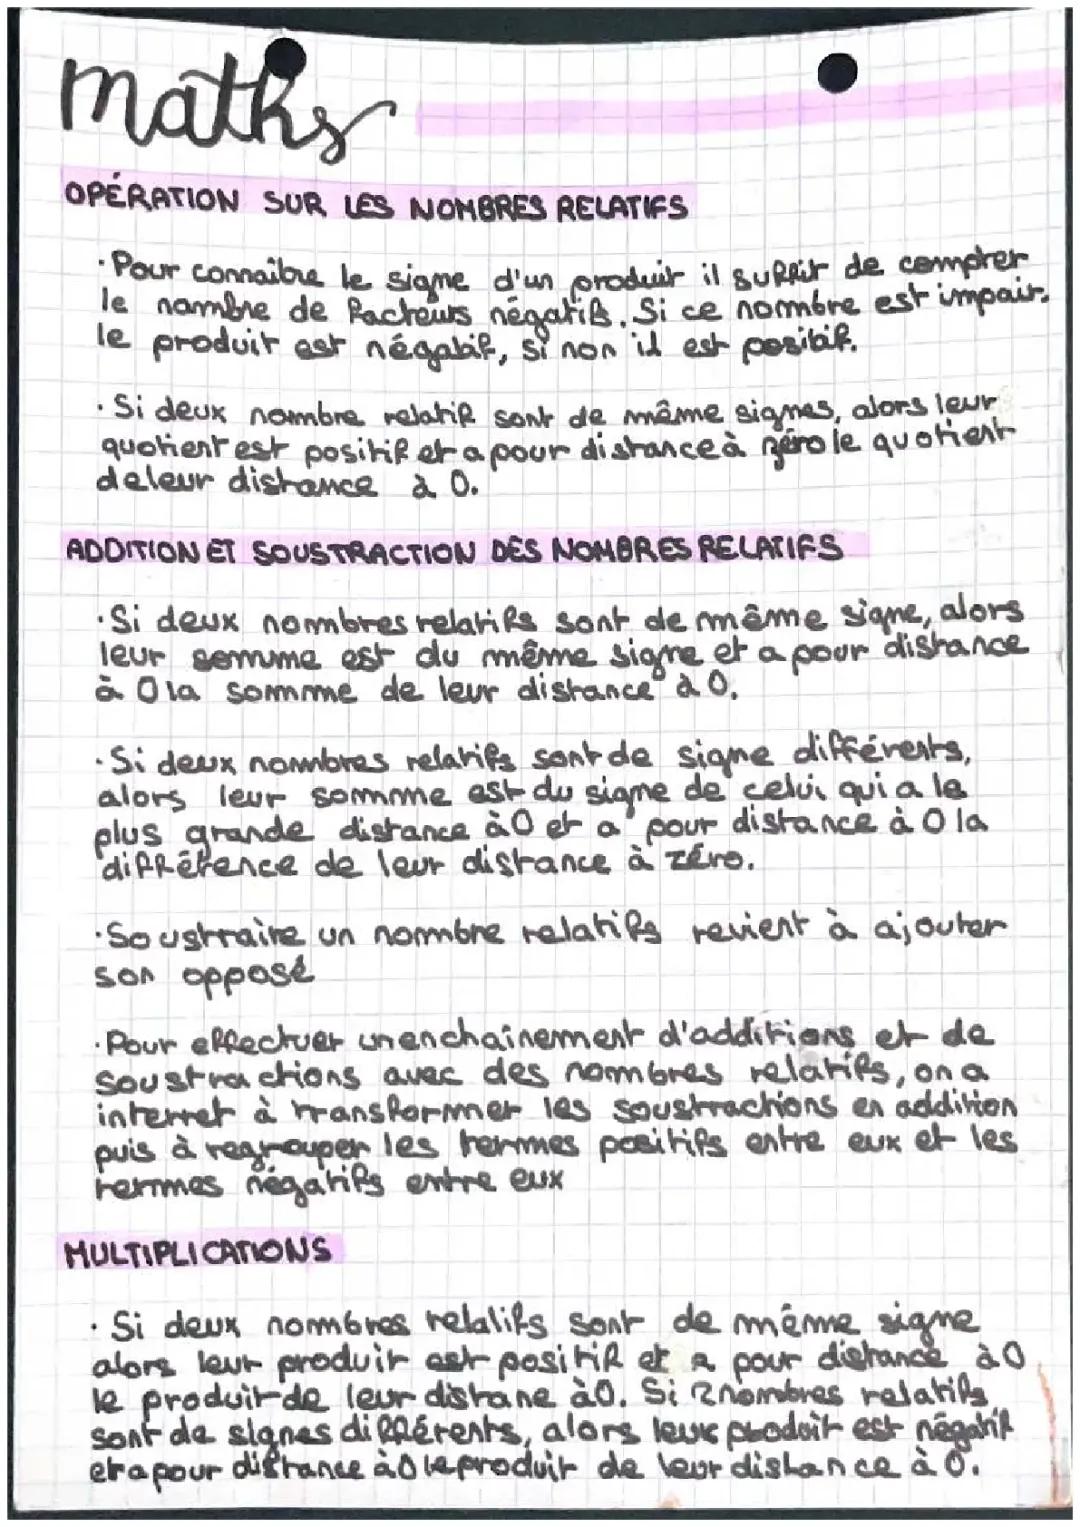 maths
OPÉRATION SUR LES NOMBRES RELATIFS
· Pour connaître le signe d'un produit il suffit de compter
le nombre de facteurs négatifs. Si ce nommbre est impair,
le produit est négatif, si non il est positif.
· Si deux nombre relatif sont de même signes, alors leur
quotient est positif et a pour distance à zéro le quotient
de leur distance à 0.
ADDITION ET SOUSTRACTION DES NOMBRES RELATIFS
· Si deux nombres relatifs sont de même signe, alors
leur somme est du même signe et a pour distance
à 0 la somme de leur distance à 0.
· Si deux nombres relatifs sont de signe différents,
alors leur somme est du signe de celui qui a la
plus grande distance à 0 et a pour distance à 0 la
différence de leur distance à zéro.
· Soustraire un nombre relatifs revient à ajouter
son opposé
· Pour effectuer un enchaînement d'additions et de
soustractions avec des nombres relatifs, on a
interret à transformer les soustractions en addition
puis à regrouper les termes positifs entre eux et les
termes négatifs entre eux
MULTIPLICATIONS
· Si deux nombres relatifs sont de même signe
alors leur produit est positif et a pour distance à 0
le produit de leur distane à 0. Si 2 nombres relatifs
sont de signes différents, alors leur produit est négatif
et a pour distance à 0 le produit de leur distance à 0.